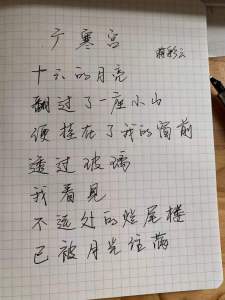 广寒宫
蒋彩云
十六的月亮
翻过了一座小山
便挂在了我的窗前
透过玻璃
我看见
不远处的烂尾楼
已被月光住满